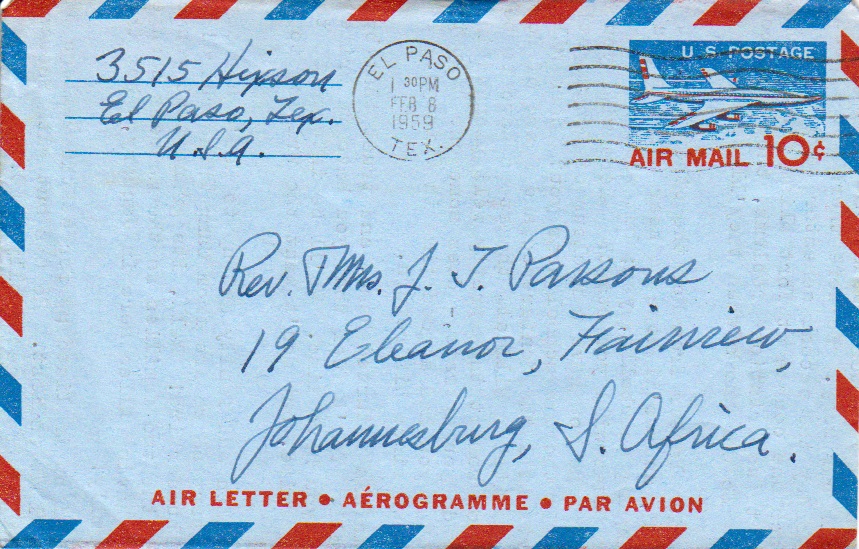 3515 Hixson
El Paso, Tex.
U.S.A.
EL PASO
1 30 PM
FEB 8
1959
TEX.
U S POSTAGE
AIR MAIL 10¢
Rev. & Mrs. J. T. Parsons
19 Eleanor, Fairview,
Johannesburg, S. Africa.
AIR LETTER • AÉROGRAMME • PAR AVION